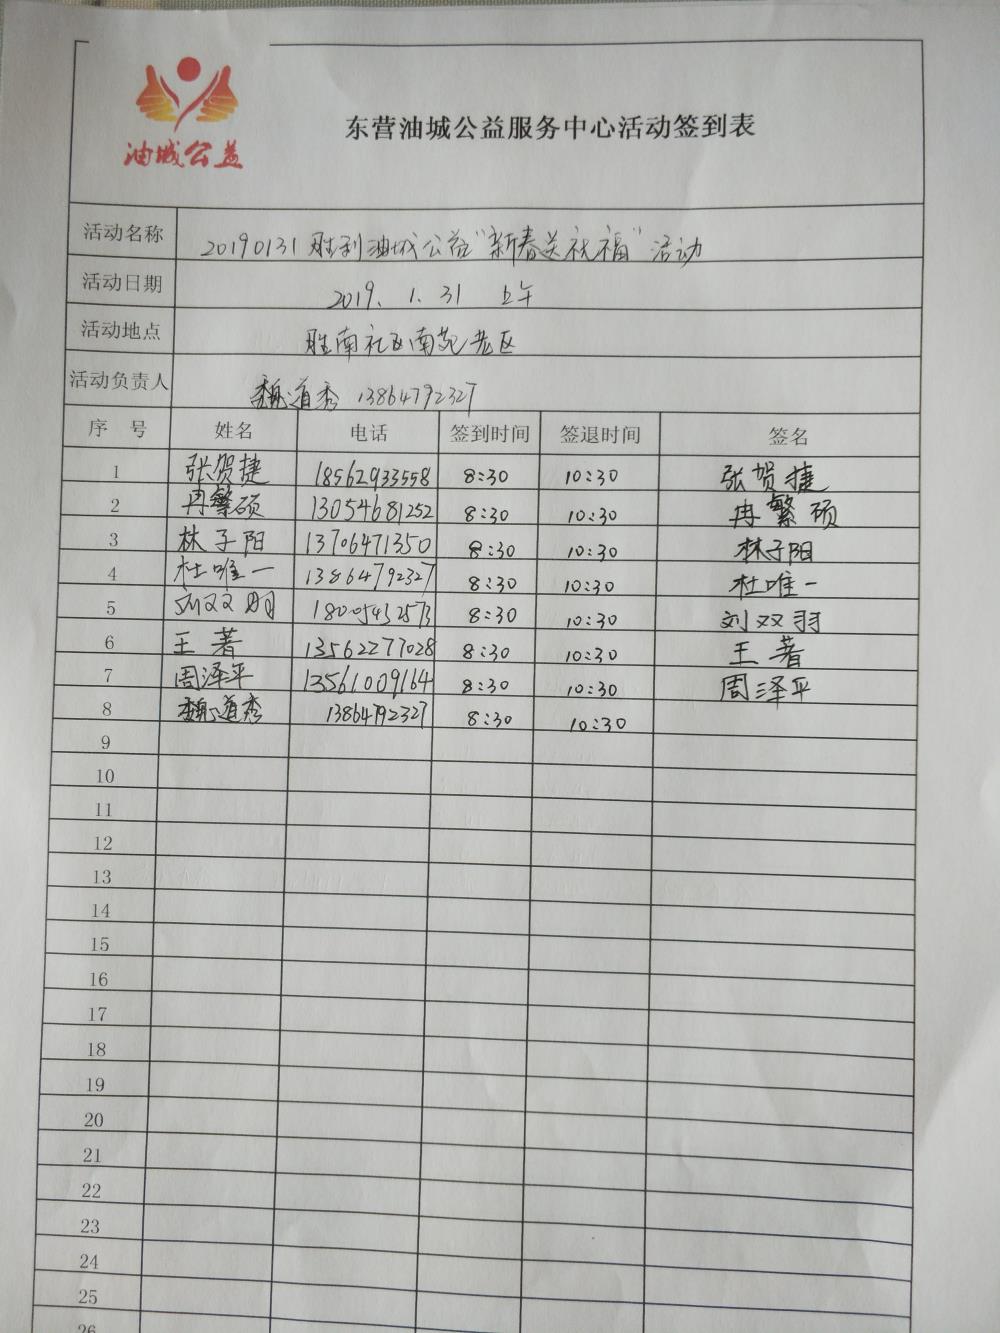 油城公益
东营油城公益服务中心活动签到表
活动名称 20190131胜利油城公益“新春送祝福”活动
活动日期 2019.1.31 上午
活动地点 胜南社区南苑老区
活动负责人 魏道秀 13864792327
序号 姓名 电话 签到时间 签退时间 签名
1 张贺捷 18562933558 8:30 10:30 张贺捷
2 冉繁硕 13054681252 8:30 10:30 冉繁硕
3 林子阳 13706471350 8:30 10:30 林子阳
4 杜唯一 13864792327 8:30 10:30 杜唯一
5 刘双羽 18005452573 8:30 10:30 刘双羽
6 王著 13562277028 8:30 10:30 王著
7 周泽平 13561009164 8:30 10:30 周泽平
8 魏道秀 13864792327 8:30 10:30
9
10
11
12
13
14
15
16
17
18
19
20
21
22
23
24
25
26